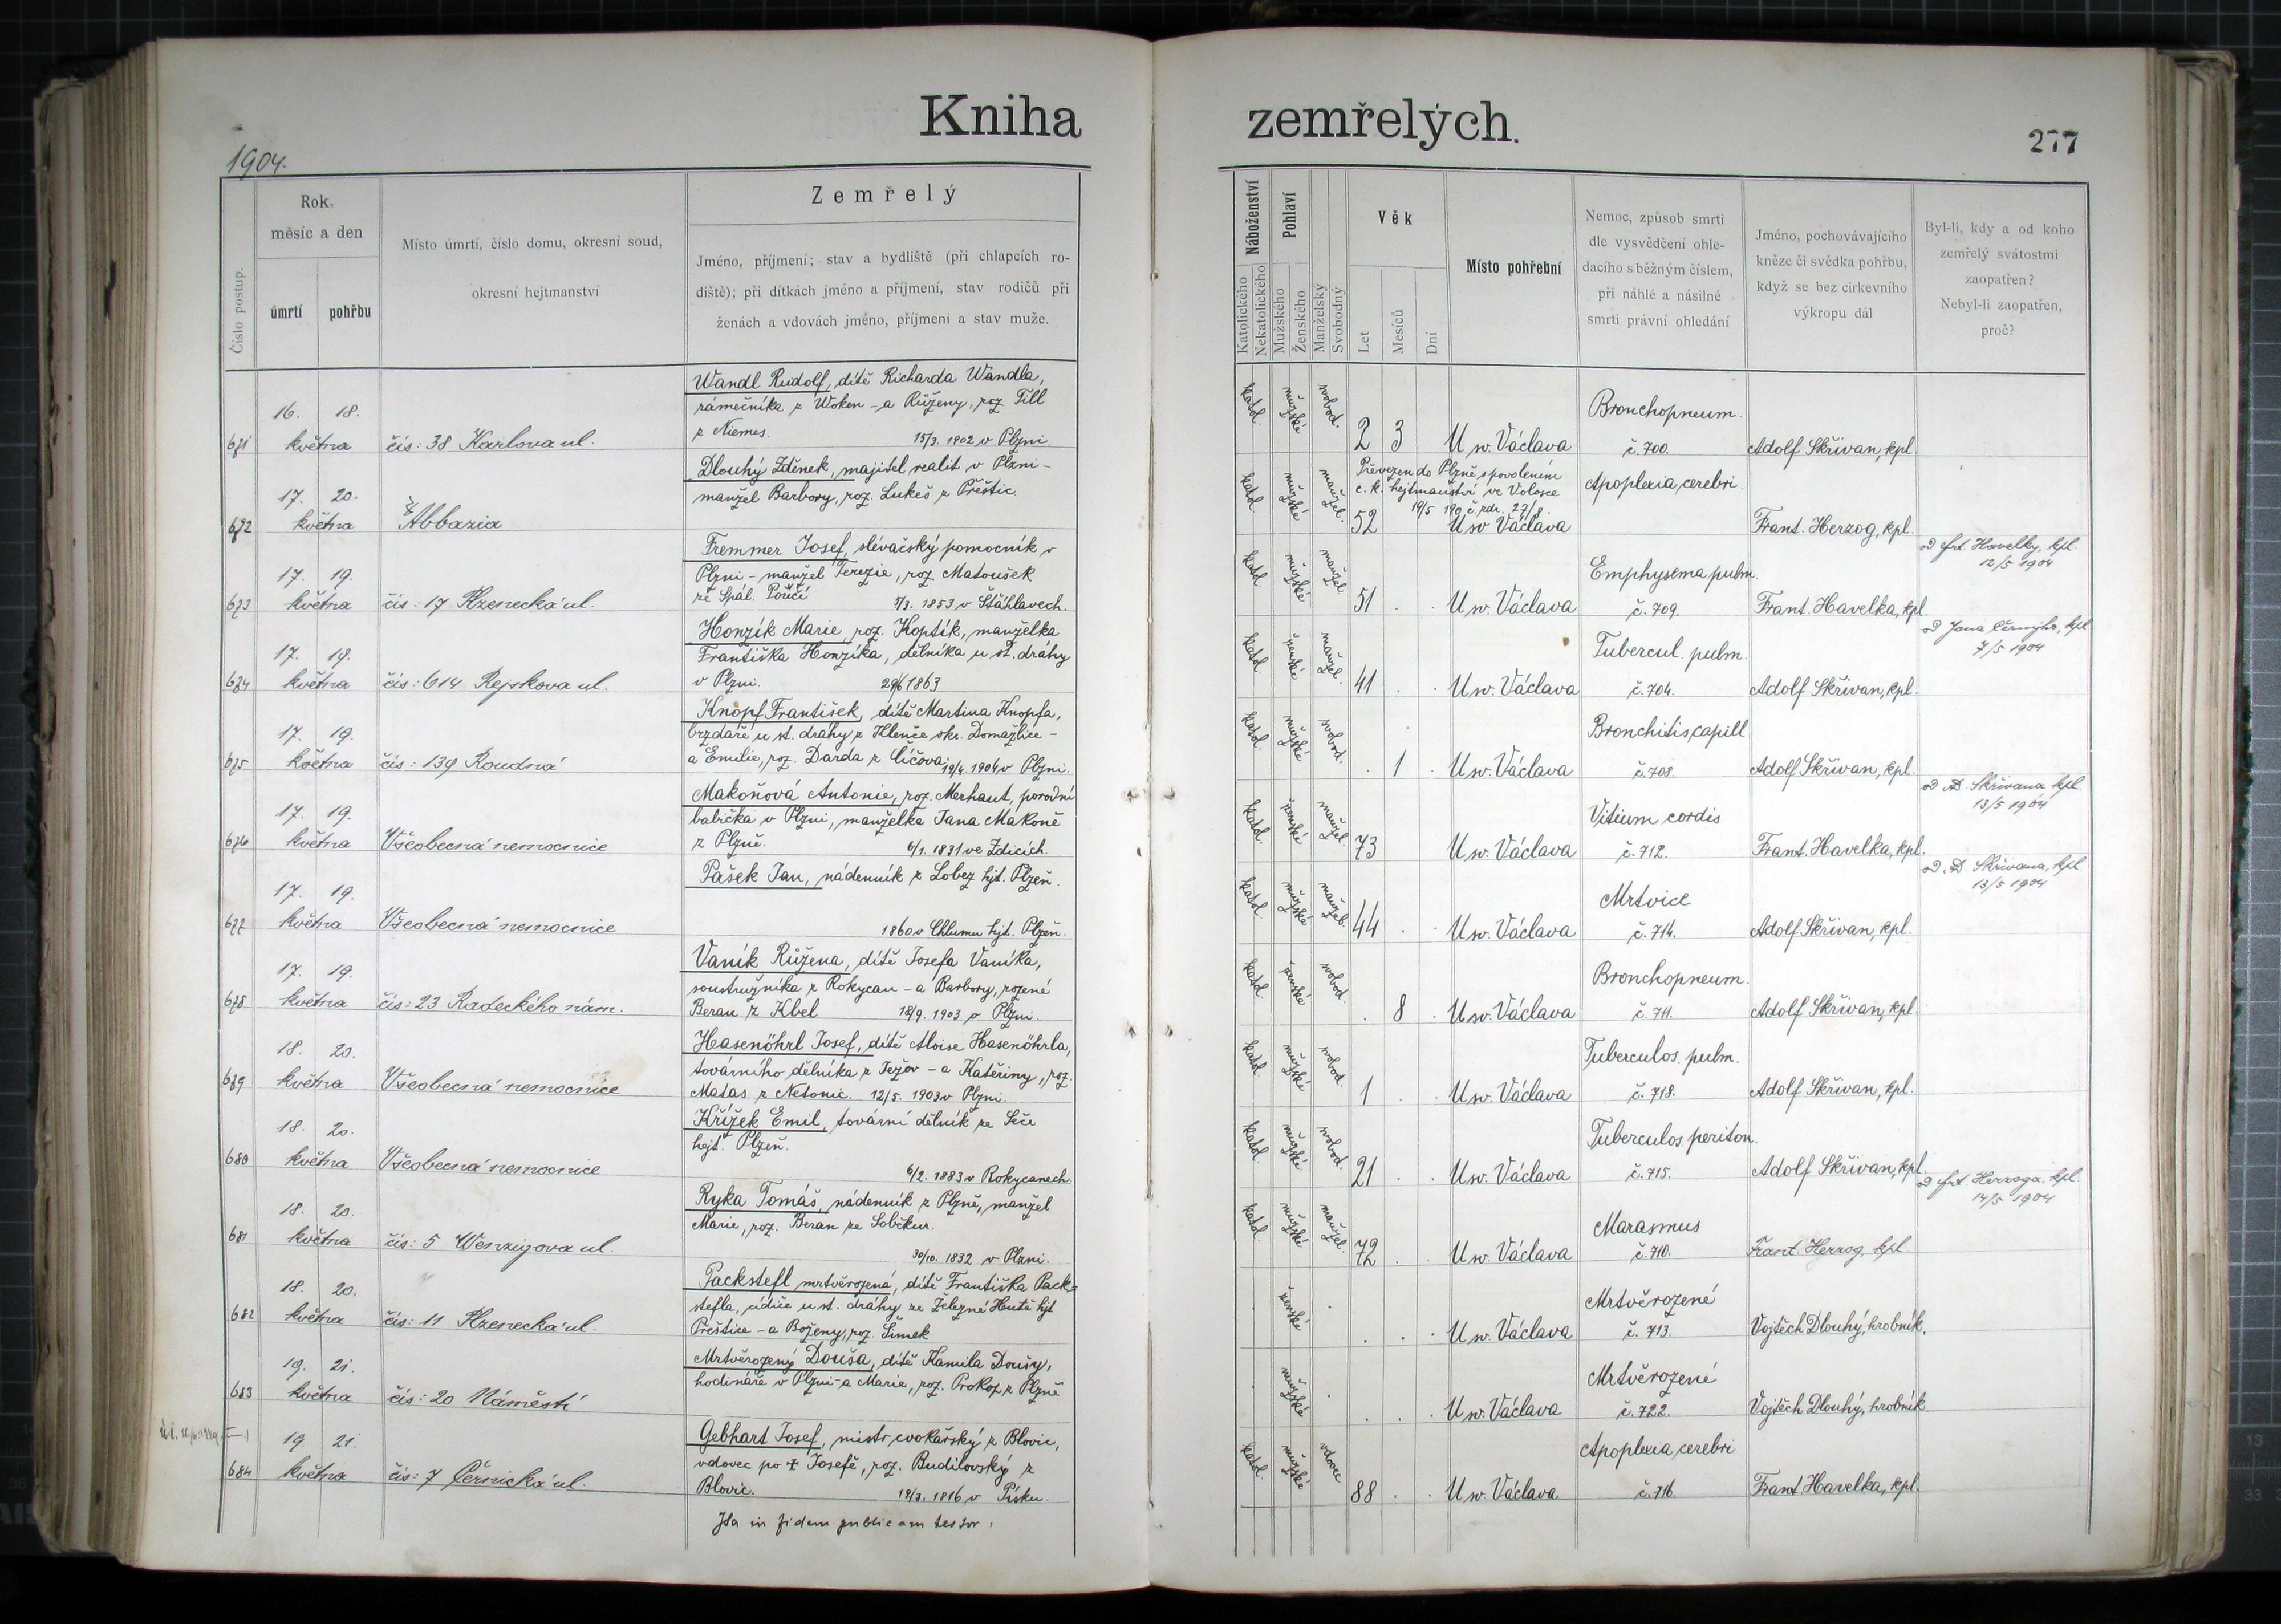 Kniha zemřelých.
1904.
277
Číslo postup.
Rok,
měsíc a den
úmrtí
pohřbu
Místo úmrtí, číslo domu, okresní soud,
okresní hejtmanství
Zemřelý
Jméno, příjmení; stav a bydliště (při chlapcích ro-
diště); při dítkách jméno a příjmení, stav rodičů při
ženách a vdovách jméno, příjmení a stav muže.
Náboženství
Katolického
Nekatolického
Pohlaví
Mužského
Ženského
Manželský
Svobodný
Věk
Let
Mesíců
Dní
Místo pohřební
Nemoc, způsob smrti
dle vysvědčení ohle-
dacího s běžným číslem,
při náhlé a násilné
smrti právní ohledání
Jméno, pochovávajícího
kněze či svědka pohřbu,
když se bez církevního
výkropu dál
Byl-li, kdy a od koho
zemřelý svátostmi
zaopatřen?
Nebyl-li zaopatřen,
proč?
671 16. května 18. čís: 38 Karlova ul.
Wandl Rudolf, dítě Richarda Wandla,
zámečníka z Woken - a Růženy, roz. Till
z Niemes. 15/3. 1902 v Plzni
katol. mužské svobod. 2 3 U sv. Václava
Bronchopneum.
č. 700. Adolf Skřivan, kpl.
672 17. května 20. Abbazia
Dlouhý Zděnek, majitel realit v Plzni -
manžel Barbory, roz. Lukeš z Přeštic.
katol. mužské manžel. 52
Převezen do Plzně s povolením
c. k. hejtmanství ve Volosce
19/5 190 č. zdr. 27/8.
U sv Václava
Apoplexia cerebri
Frant. Herzog, kpl.
673 17. května 19. čís: 17 Plzenecká ul.
Fremmer Josef, slévačský pomocník v
Plzni - manžel Terezie, roz. Matoušek
ze Spál. Poříčí 5/3. 1853 v Štáhlavech.
katol. mužské manžel. 51 . . U sv. Václava
Emphysema pulm.
č. 709. Frant. Havelka, kpl
od Frt. Havelky, kpl.
12/5 1904
674 17. května 19. čís: 614 Rejskova ul.
Honzík Marie, roz. Koptík, manželka
Františka Honzíka, dělníka u st. dráhy
v Plzni. 29/6 1863
katol. ženské manžel. 41 . . U sv. Václava
Tubercul. pulm.
č. 704. Adolf Skřivan, kpl.
od Jana Černýho, kpl
7/5 1904
675 17. května 19. čís: 139 Roudná
Knopf František, dítě Martina Knopfa,
brzdaře u st. dráhy z Klenče okr. Domažlice -
a Emilie, roz. Darda z Číčova 19/4. 1904 v Plzni.
katol. mužské svobod. . 1 . U sv. Václava
Bronchitis capill
č. 708. Adolf Skřivan, kpl.
676 17. května 19. Všeobecná nemocnice
Makoňová Antonie, roz. Merhaut, porodní
babička v Plzni, manželka Jana Makoně
z Plzně. 6/1. 1831 ve Zdicích.
katol. ženské manžel. 73 U sv. Václava
Vitium cordis
č. 712. Frant. Havelka, kpl.
od Ad. Skřivana kpl
13/5 1904
677 17. května 19. Všeobecná nemocnice
Pašek Jan, nádenník z Lobez hjt. Plzeň.
1860 v Chlumu hjt. Plzeň.
katol. mužské manžel. 44 . . U sv. Václava
Mrtvice
č. 714. Adolf Skřivan, kpl.
od Ad. Skřivana, kpl
13/5 1904
678 17. května 19. čís: 23 Radeckého nám.
Vaník Růžena, dítě Josefa Vaníka,
soustružníka z Rokycan - a Barbory, rozené
Beran z Kbel 18/9. 1903 v Plzni.
katol. ženské svobod. . 8 . U sv. Václava
Bronchopneum.
č. 711. Adolf Skřivan, kpl.
679 18. května 20. Všeobecná nemocnice
Hasenöhrl Josef, dítě Aloise Hasenöhrla,
továrního dělníka z Težov - a Kateřiny, roz.
Matas z Netonic. 12/5. 1903 v Plzni.
katol. mužské svobod. 1 . . U sv. Václava
Tuberculos. pulm.
č. 718. Adolf Skřivan, kpl.
680 18. května 20. Všeobecná nemocnice
Křížek Emil, tovární dělník ze Seče
hejt. Plzeň.
6/2. 1883 v Rokycanech
katol. mužské svobod. 21 . . U sv. Václava
Tuberculos. periton.
č. 715. Adolf Skřivan, kpl.
681 18. května 20. čís: 5 Wenzigova ul.
Ryka Tomáš, nádenník z Plzně, manžel
Marie, roz. Beran ze Soběkur.
30/10. 1832 v Plzni.
katol. mužské manžel. 72 . . U sv. Václava
Marasmus
č. 710. Frant. Herzog, kpl.
od Frt Herzoga, kpl.
14/5 1904
682 18. května 20. čís: 11 Plzenecká ul.
Packstefl mrtvěrozená, dítě Františka Pack-
stefla, údiče u st. dráhy ze Železné Hutě hjt
Přeštice - a Boženy, roz. Šimek
. ženské . . . . U sv. Václava
Mrtvěrozené
č. 713. Vojtěch Dlouhý, hrobník.
683 19. května 21. čís: 20 Náměstí
Mrtvěrozený Douša, dítě Kamila Doušy,
hodináře v Plzni - a Marie, roz. Prokop z Plzně
. mužské . . . . U sv. Václava
Mrtvěrozené
č. 722. Vojtěch Dlouhý, hrobník
684 19. května 21. čís: 7 Černická ul.
Gebhart Josef, mistr cvokařský z Blovic,
vdovec po † Josefě, roz. Budilovský z
Blovic. 19/3. 1816 v Písku.
katol. mužské vdovec 88 . . U sv. Václava
Apoplexia cerebri
č. 716. Frant Havelka, kpl.
Ita in fidem publicam testor: